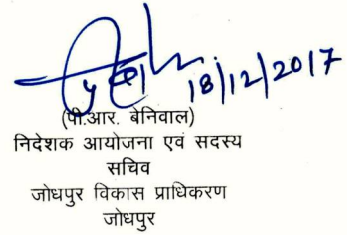 18/12/2017
(पी.आर. बेनिवाल)
निदेशक आयोजना एवं सदस्य
सचिव
जोधपुर विकास प्राधिकरण
जोधपुर